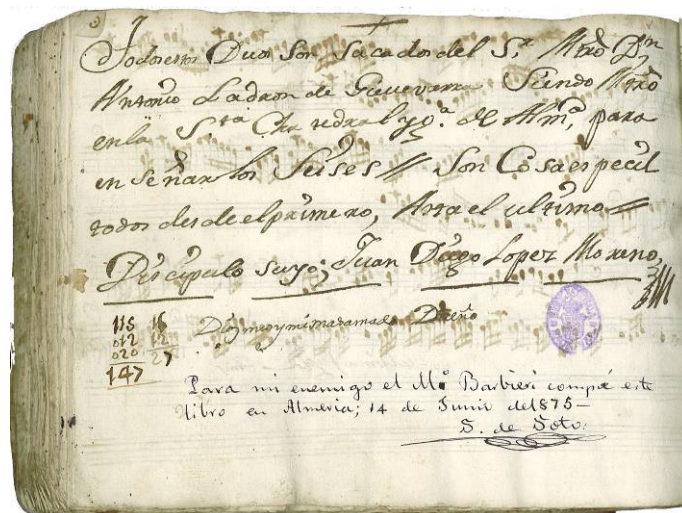 Todos estos Duos son sacados del Sr. Mtrō Dn
Antonio Ladron de Guevarra Siendo Mtrō
en la Sta Cha tedral ygª. de Almª, para
en señar los Seises // Son Cosa especial
todos desde el primero, Asta el ultimo =
Discipulo suyo; Juan Diego Lopez Moreno,
115 16
012 12
020 27
147
Dios mio y mi madama de Dueño
Para mi enemigo el Mº Barbieri compré este
libro en Almeria; 14 de Junio de 1875 —
S. de Soto.